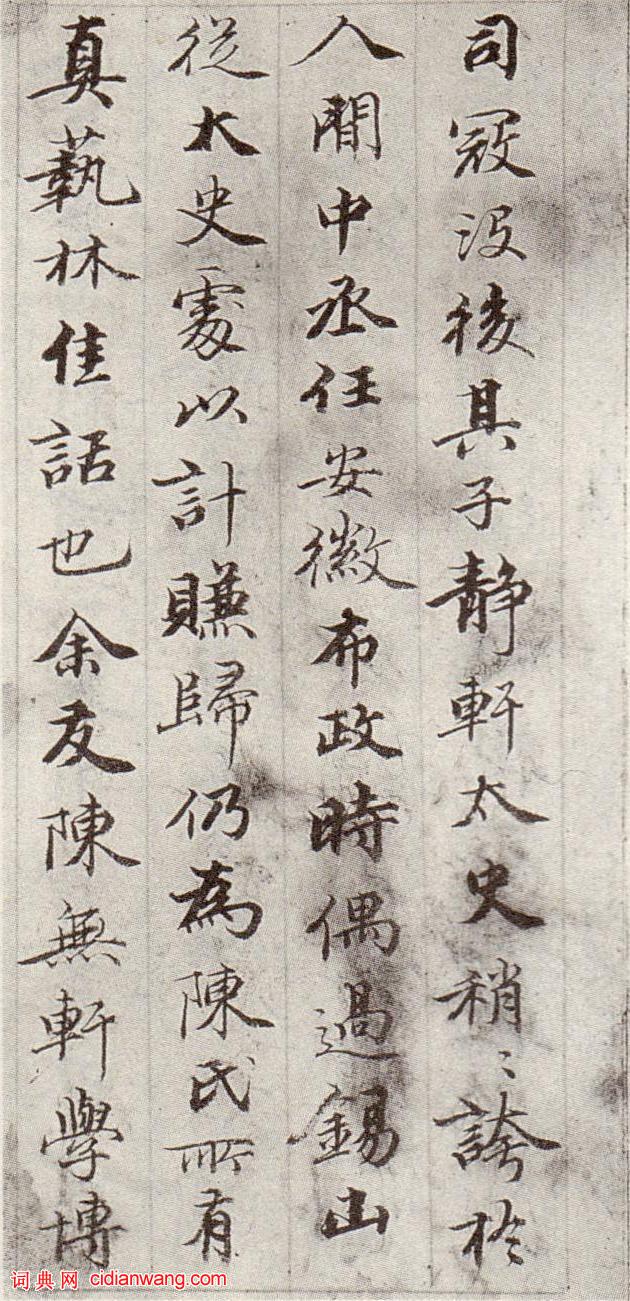 司寇没後其子静軒太史稍〻誇於
人間中丞任安徽布政時偶過錫山
従太史處以計賺歸仍為陳氏所有
真藝林佳話也余友陳無軒學博
词典网 cidianwang.com